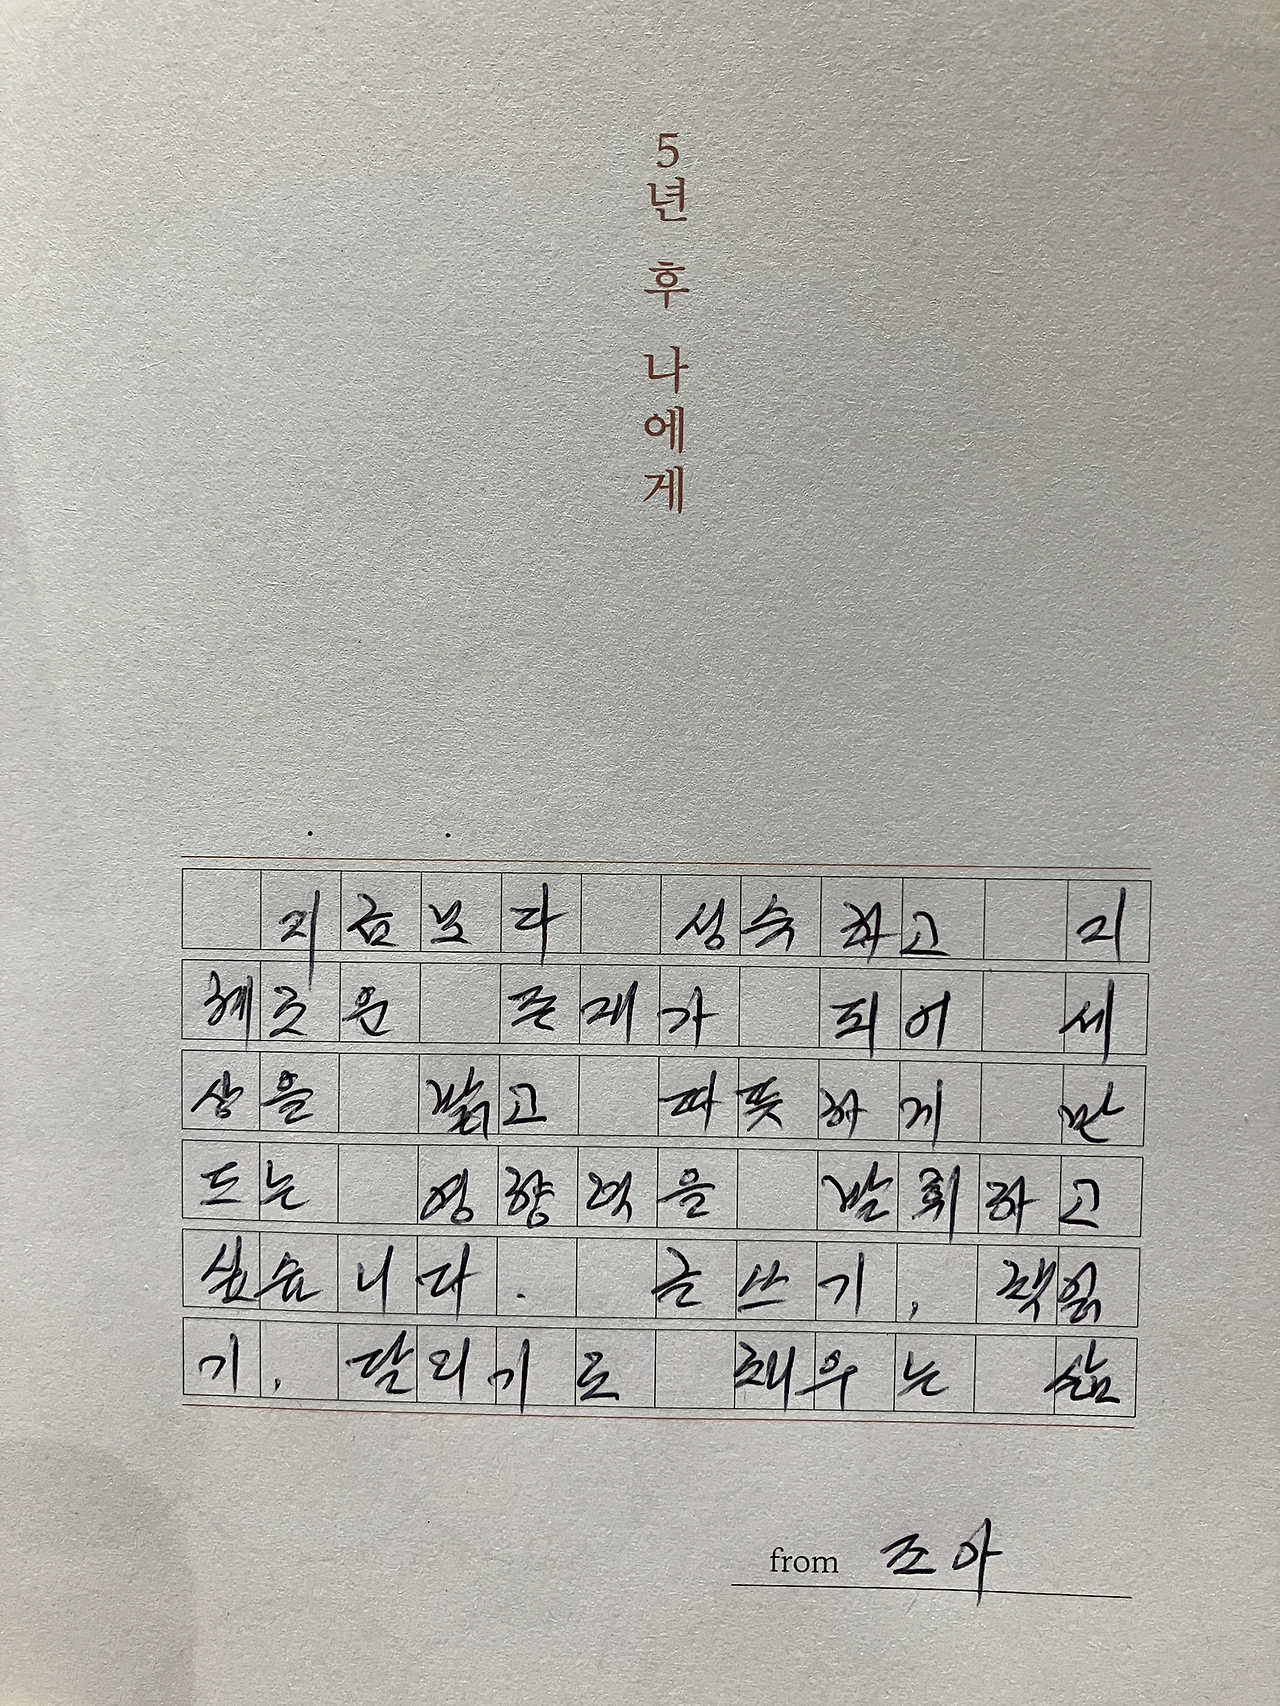 5년 후 나에게
지금보다 성숙하고 지
혜로운 존재가 되어 세
상을 밝고 따뜻하게 만
드는 영향력을 발휘하고
싶습니다. 글쓰기, 책읽
기, 달리기로 채우는 삶
from 조아